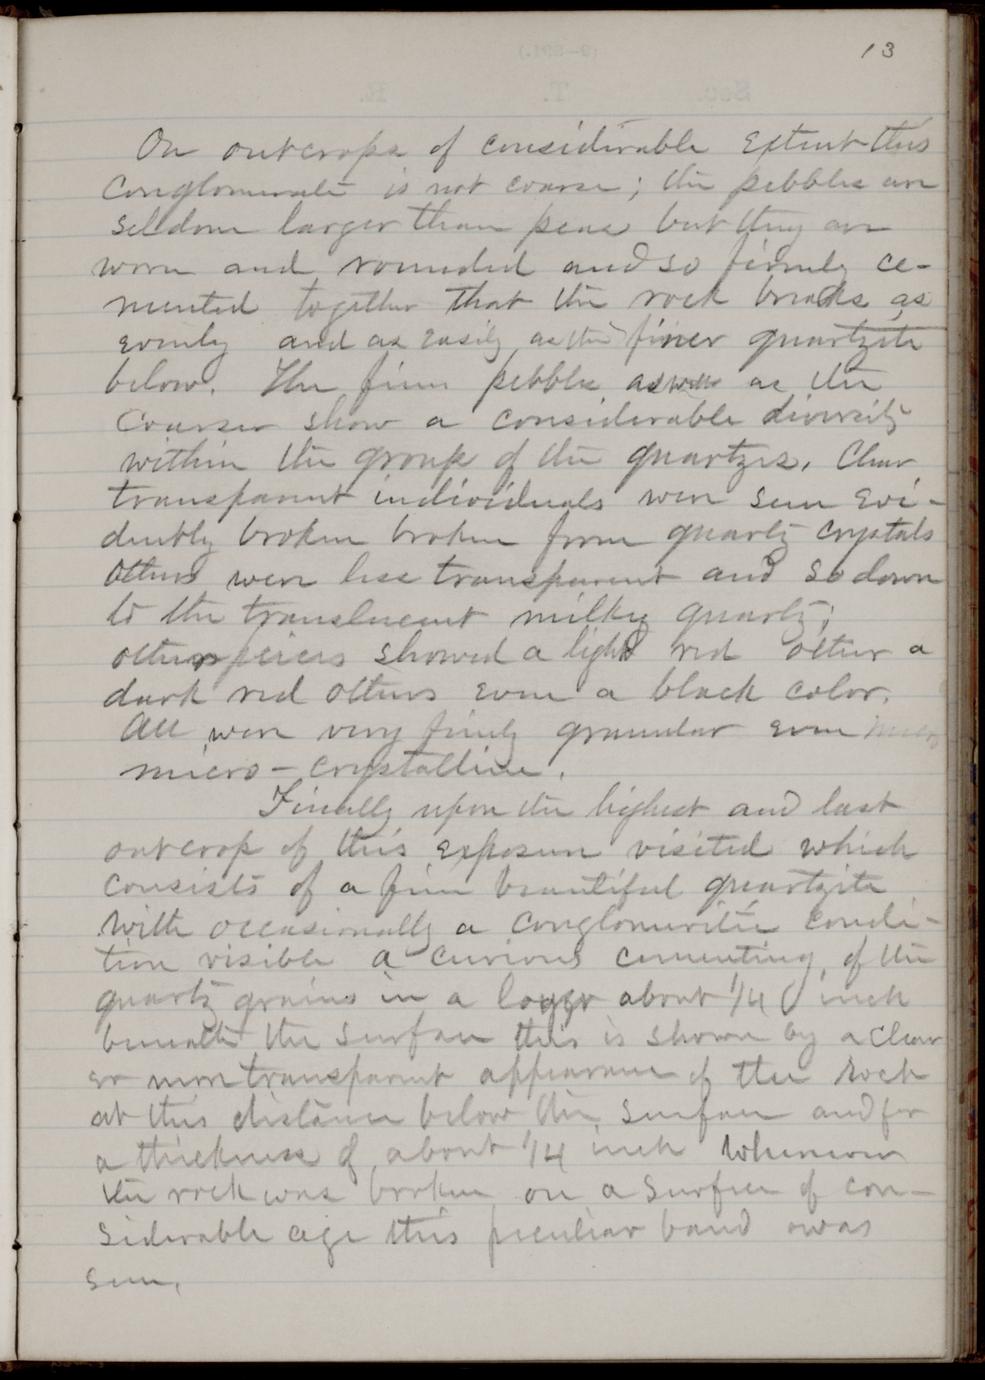 13
On outcrops of considerable extent this
conglomerate is not coarse; the pebbles are
seldom larger than peas but they are
worn and rounded and so firmly ce-
mented together that the rock breaks as
evenly and as easily as the finer quartzite
below. The finer pebbles as well as the
coarser show a considerable diversity
within the group of the quartzes. Clear
transparent individuals were seen evi-
dently broken broken from quartz crystals
others were less transparent and so down
to the translucent milky quartz;
other pieces showed a light red other a
dark red others even a black color.
All were very finely granular even micro
micro-crystalline.
Finally upon the highest and last
outcrop of this exposure visited which
consists of a fine beautiful quartzite
with occasionally a conglomeritic condi-
tion visible a curious cementing of the
quartz grains in a layer about 1/4 inch
beneath the surface this is shown by a clear
er more transparent appearance of the rock
at this distance below the surface and for
a thickness of about 1/4 inch Whenever
the rock was broken on a surface of con-
siderable age this peculiar band was
seen.